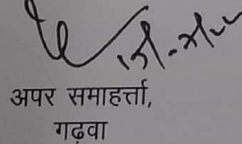 अपर समाहर्त्ता,
गढ़वा